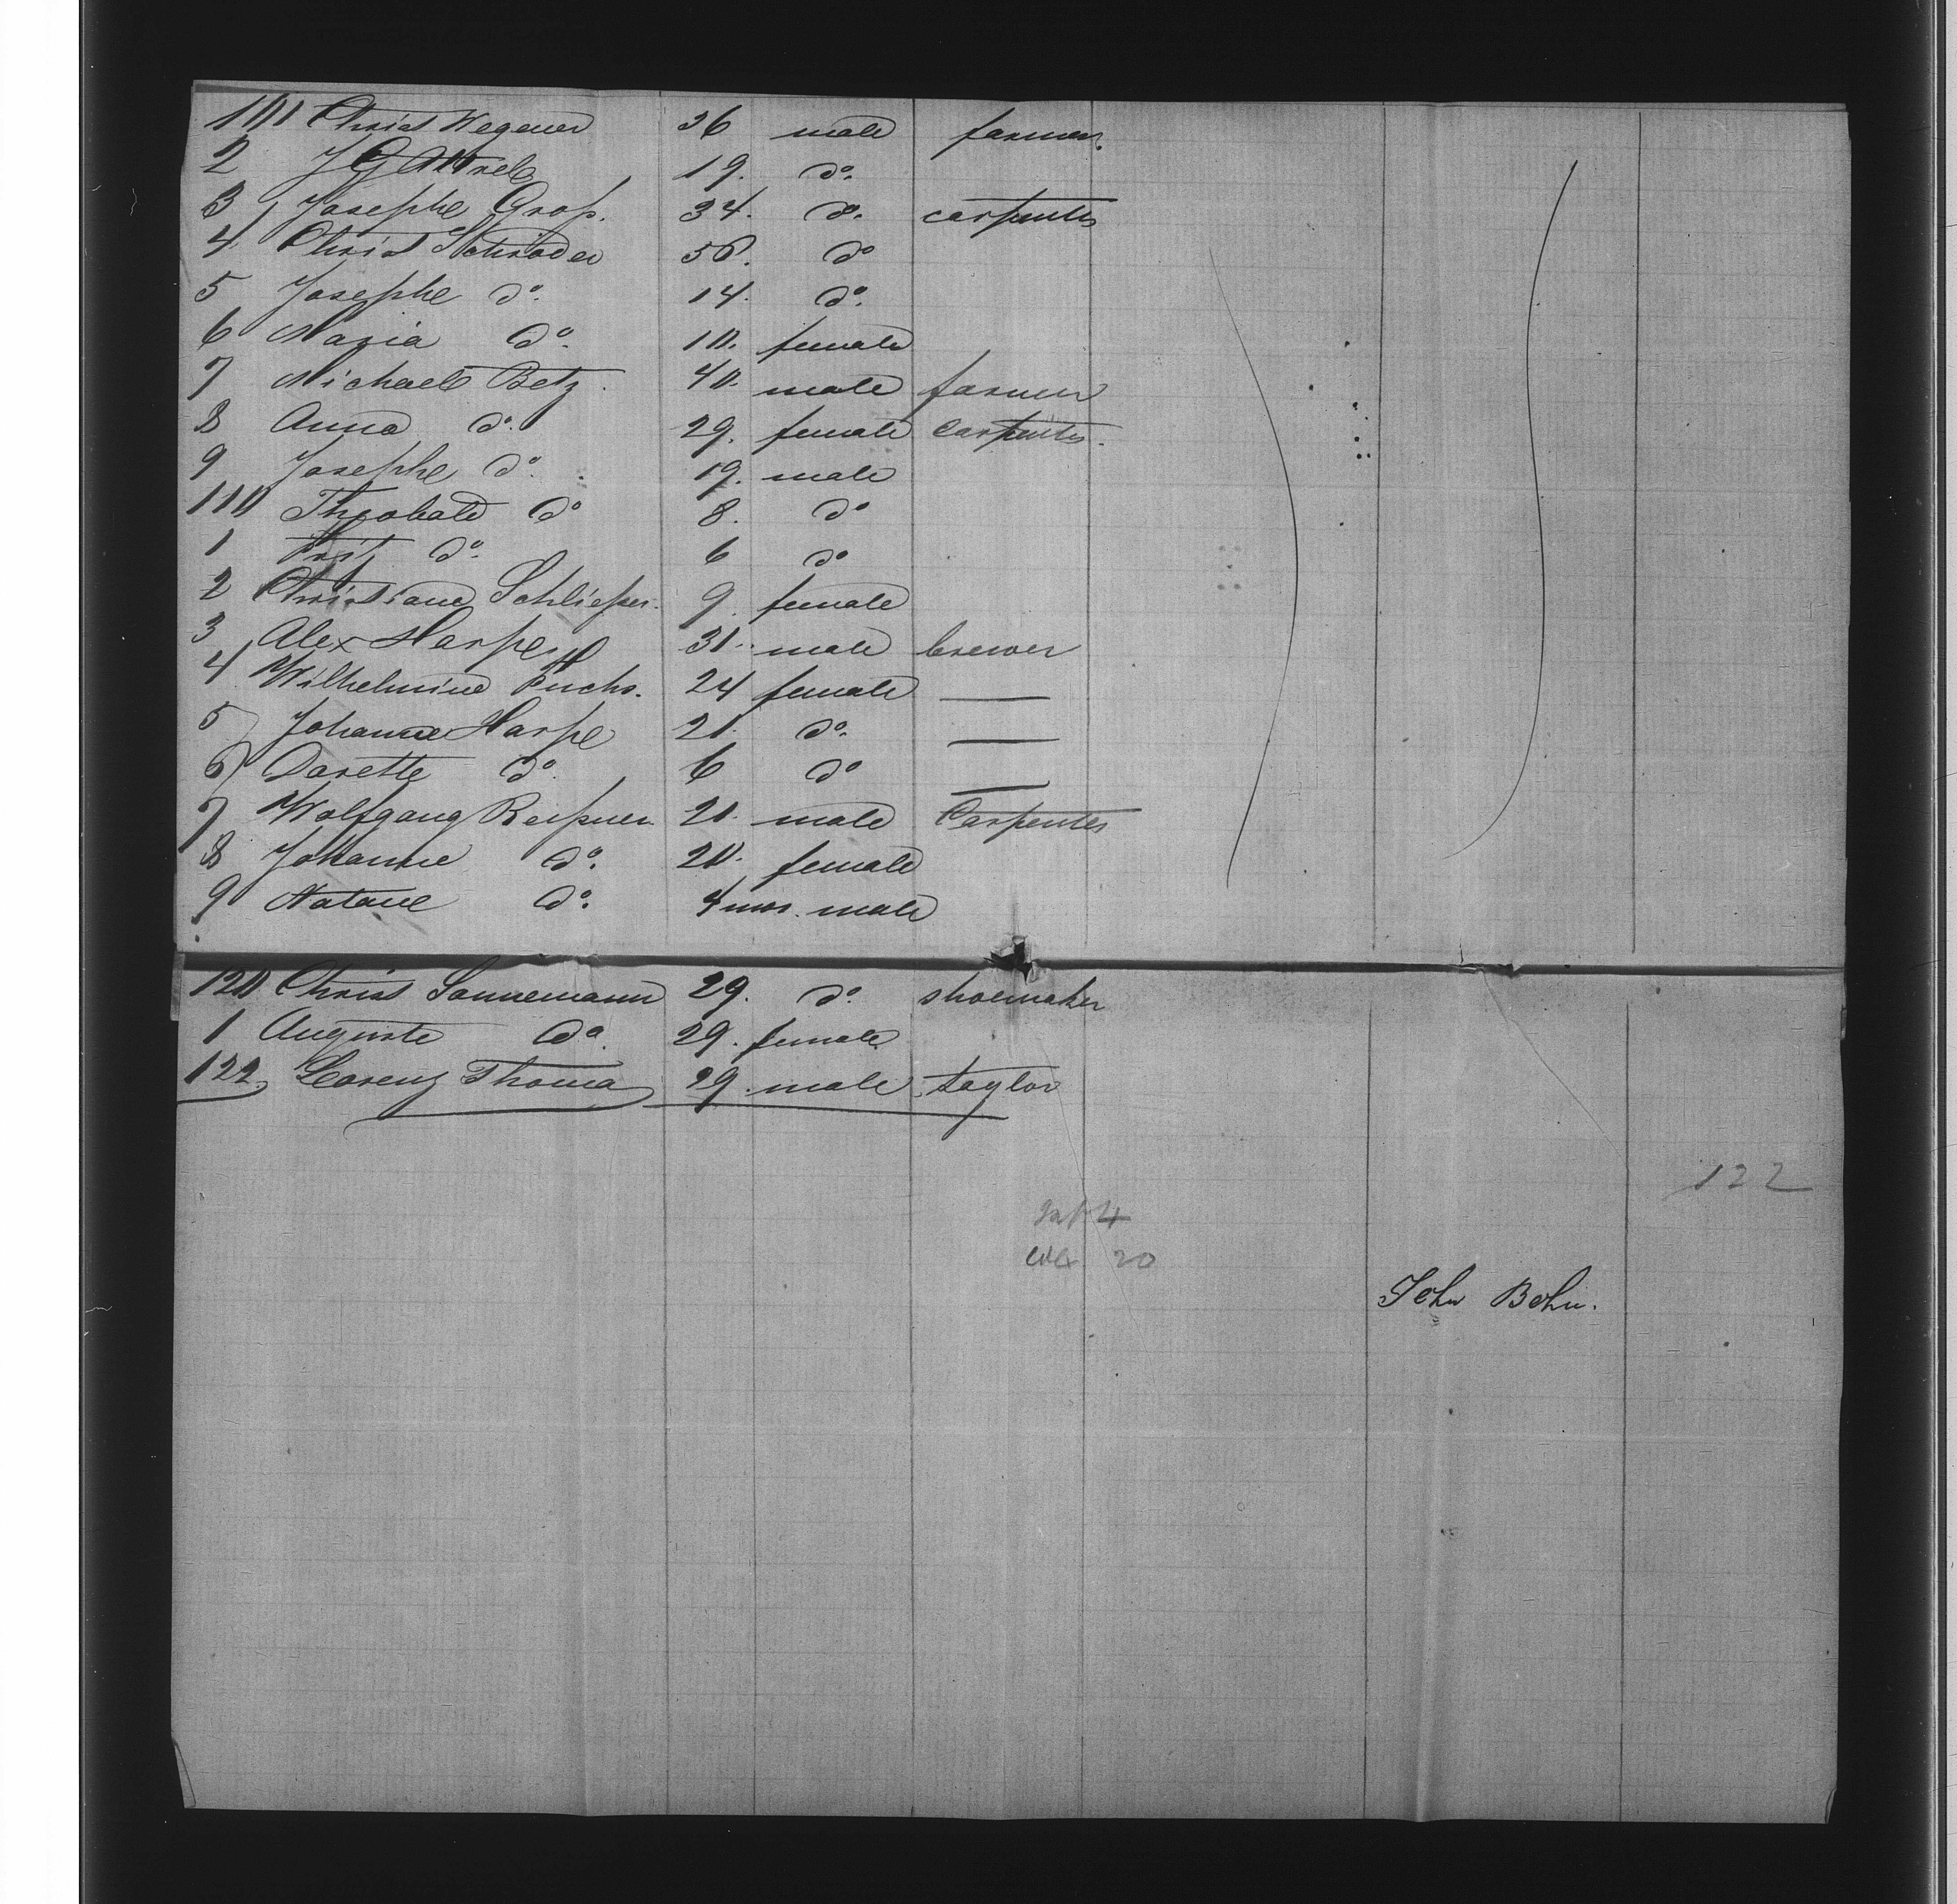 101 Christ Wegener 36 male farmer.
2 J G 19. do.
3 Josephe Grop. 34. do. carpenter
4 Christ Schröder 50. do
5 Josephe do. 14. do.
6 Maria do. 10. female
7 Michael Betz. 40. male farmer
8 Anna do. 29. female Carpenter.
9 Josephe do. 19. male
110 Theobald do 8. do
1 do. 6 do
2 Christiane Schlieper. 9. female
3 Alex Harpe 31. male brewer
4 Wilhelmine Fuchs. 24 female —
5 Johanne Harpe 21. do. —
6 Dorette do. 6 do —
7 Wolfgang Reipner 21. male Carpenter
8 Johanne do. 20. female
9 Natane do. 4 mos. male
120 Christ Sonnemann 29. do. shoemaker
1 Auguste do. 29. female.
122 Lorenz Thoma 29. male taylor
122
4
20
John Behn.